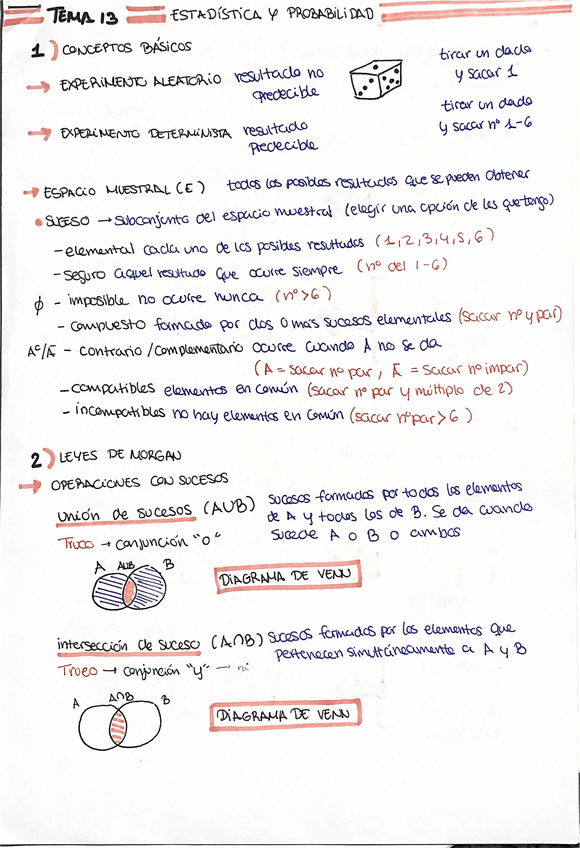 TEMA 13 ESTADÍSTICA Y PROBABILIDAD
1) CONCEPTOS BÁSICOS
→ EXPERIMENTO ALEATORIO resultado no predecible
tirar un dado y sacar 1
→ EXPERIMENTO DETERMINISTA resultado predecible
tirar un dado y sacar nº 1-6
→ ESPACIO MUESTRAL (E) todos los posibles resultados que se pueden obtener
• SUCESO → subconjunto del espacio muestral (elegir una opción de las que tengo)
- elemental cada uno de los posibles resultados (1,2,3,4,5,6)
- seguro aquel resultado que ocurre siempre (nº del 1-6)
ϕ - imposible no ocurre nunca (nº>6)
- compuesto formado por dos o más sucesos elementales (sacar nº y par)
Aᶜ/Ā - contrario/complementario ocurre cuando A no se da
(A = sacar nº par, Ā = sacar nº impar)
- compatibles elementos en común (sacar nº par y múltiplo de 2)
- incompatibles no hay elementos en común (sacar nº par > 6)
2) LEYES DE MORGAN
→ OPERACIONES CON SUCESOS
Unión de sucesos (A∪B) sucesos formados por todos los elementos
de A y todos los de B. Se da cuando
sucede A o B o ambos
Truco → conjunción "o"
A A∪B B
DIAGRAMA DE VENN
intersección de suceso (A∩B) sucesos formados por los elementos que
pertenecen simultáneamente a A y B
Truco → conjunción "y" → ni
A A∩B B
DIAGRAMA DE VENN